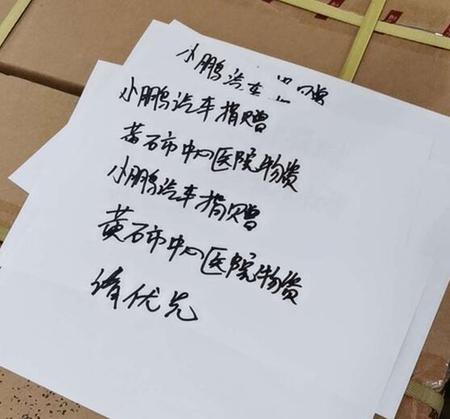 小鹏汽车
小鹏汽车捐赠
黄石市中心医院物资
小鹏汽车捐赠
黄石市中心医院物资
请优先